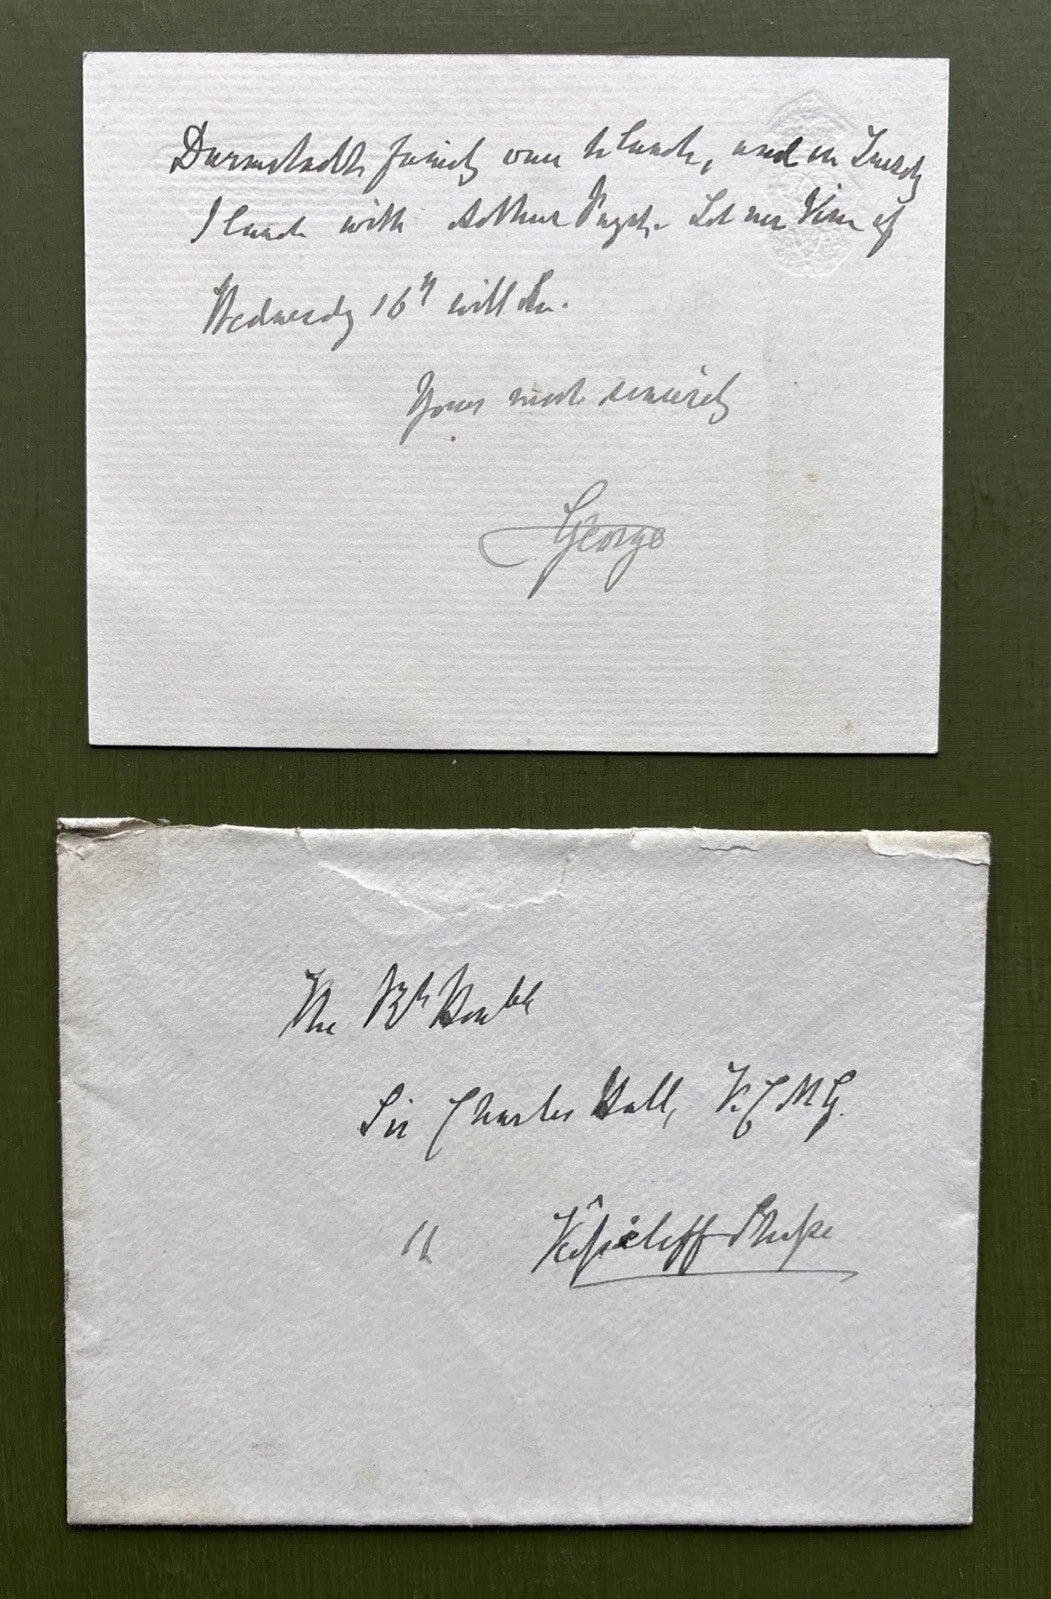 Darmstadt family come to lunch, and on Tuesdy
I lunch with Arthur Paget. Let me know if
Wednesday 16th will do.
Yours most sincerely
George
The Rt Honble
Sir Charles Hall, K.C.M.G.